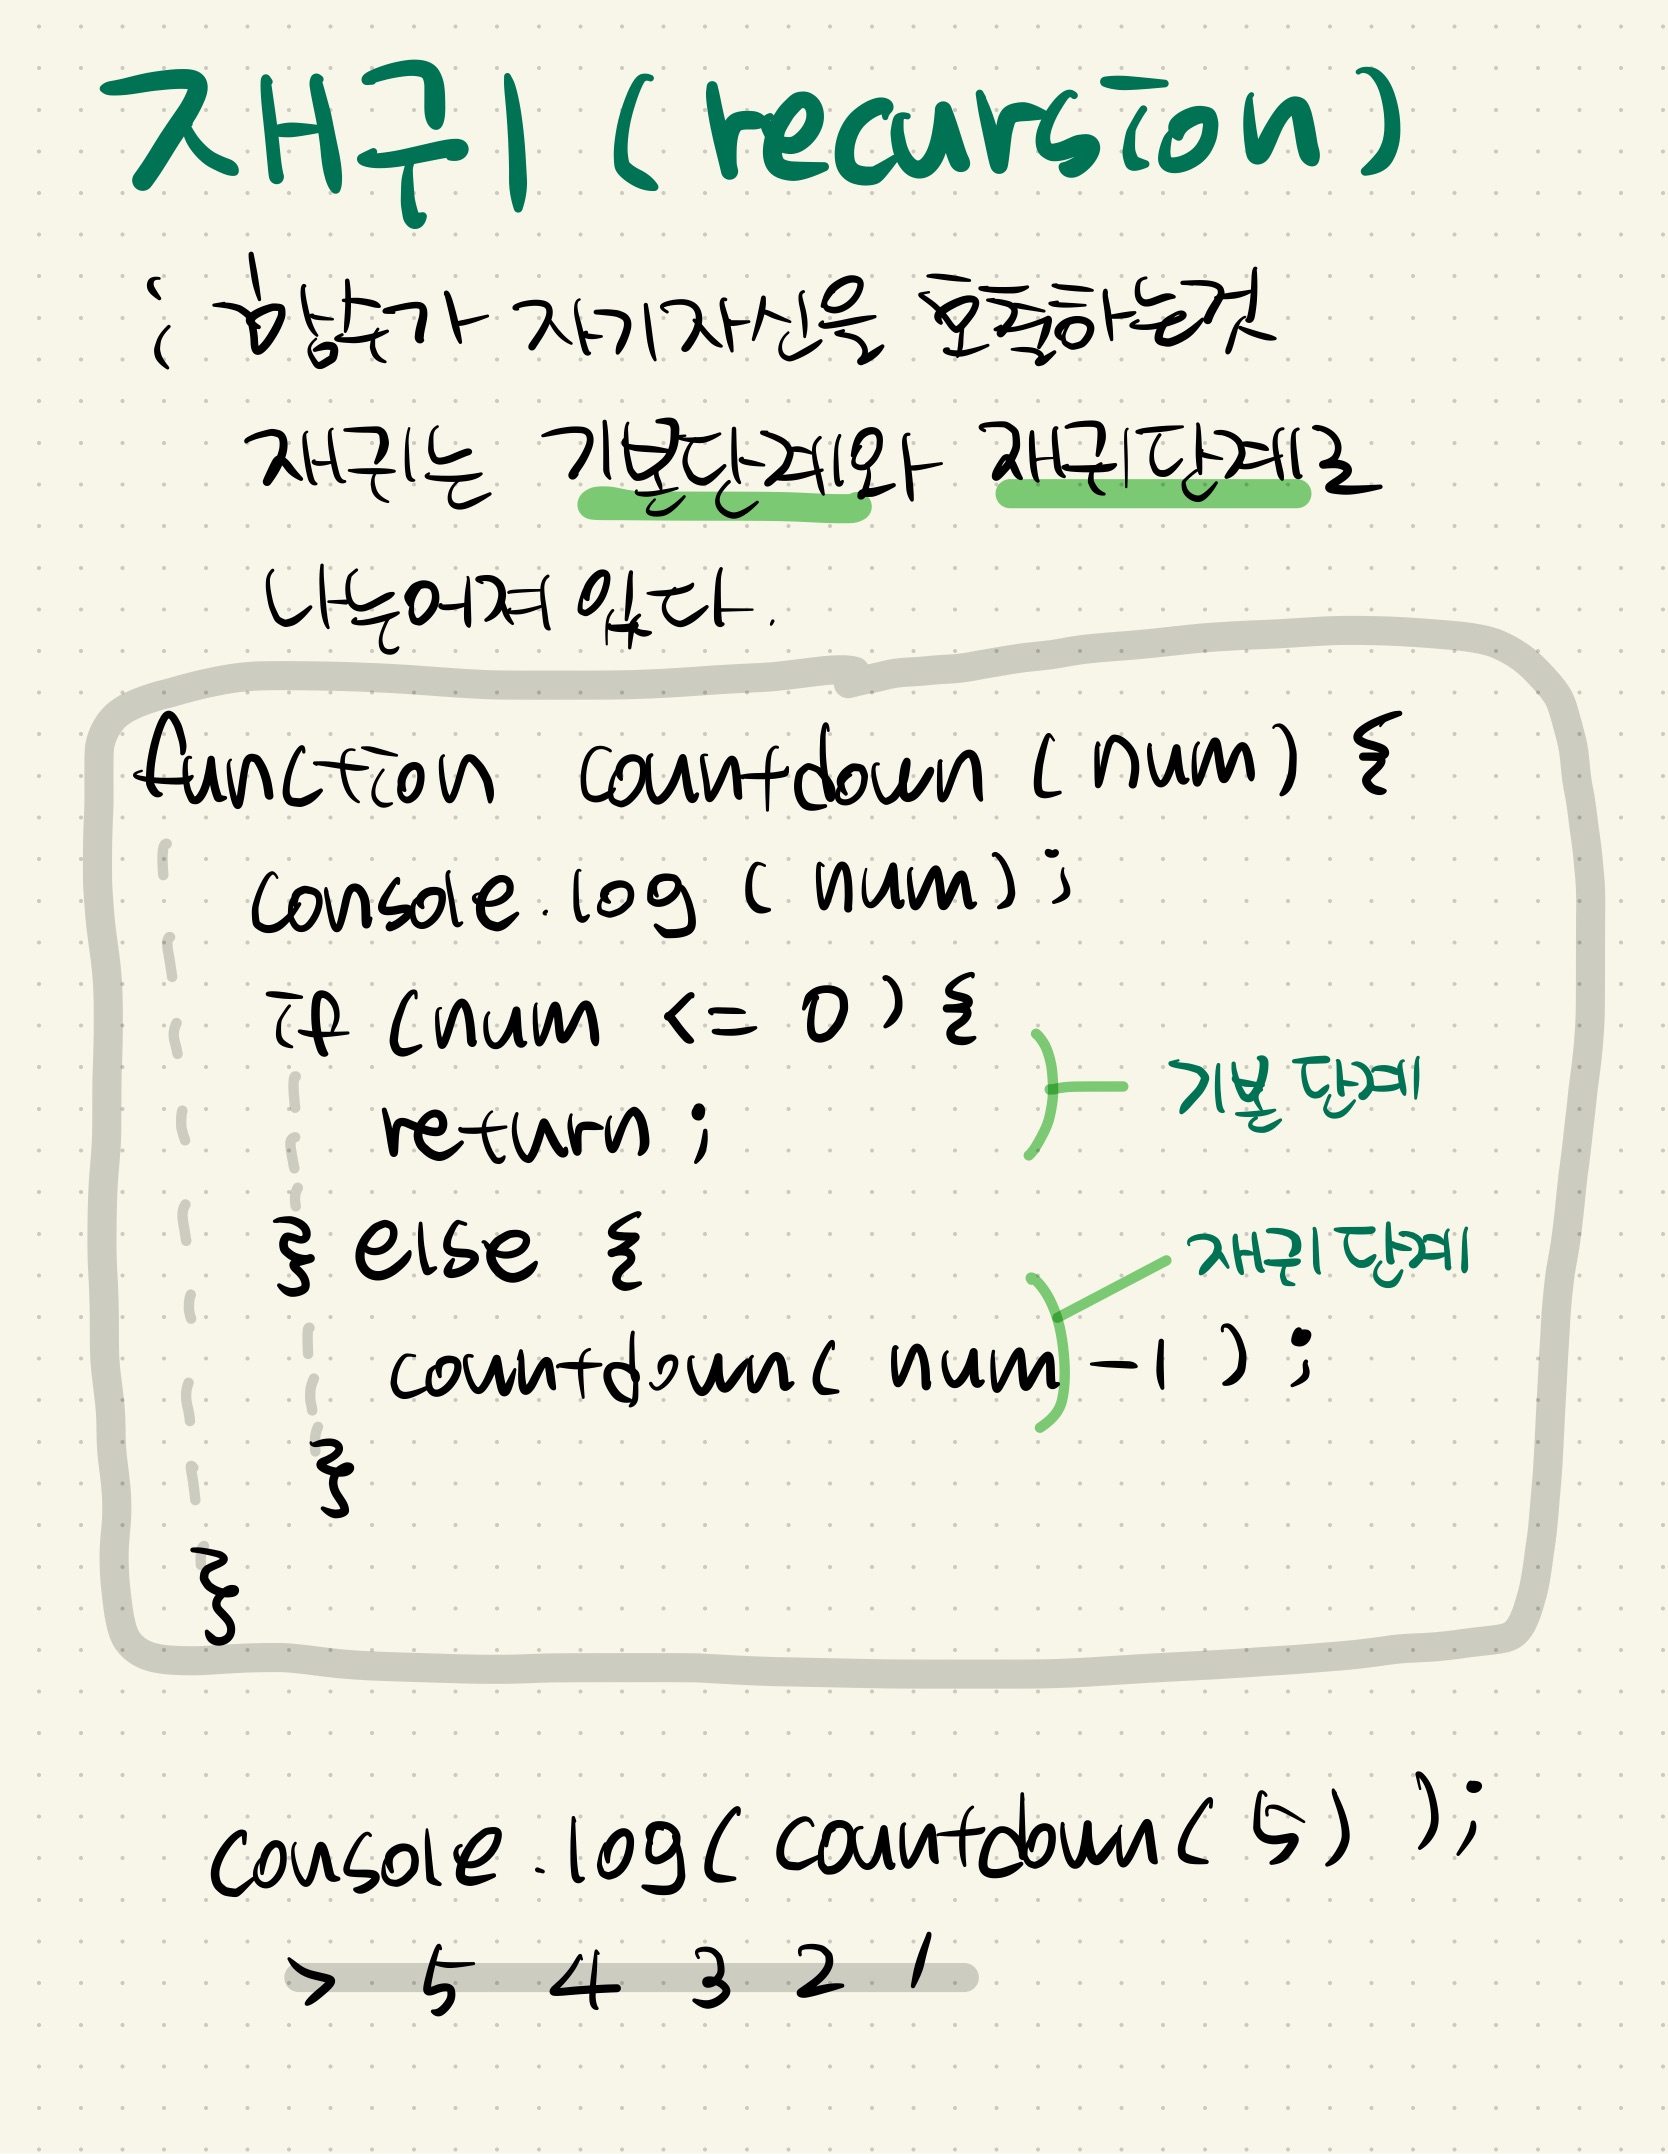 재귀 (recursion)
: 함수가 자기자신을 호출하는것
재귀는 기본단계와 재귀단계로
나눈어져 있다.
function countdown (num) {
console.log (num);
if (num <= 0) {
return;
기본 단계
} else {
재귀 단계
countdown( num -1 );
}
}
console.log( countdown( 5) );
> 5 4 3 2 1